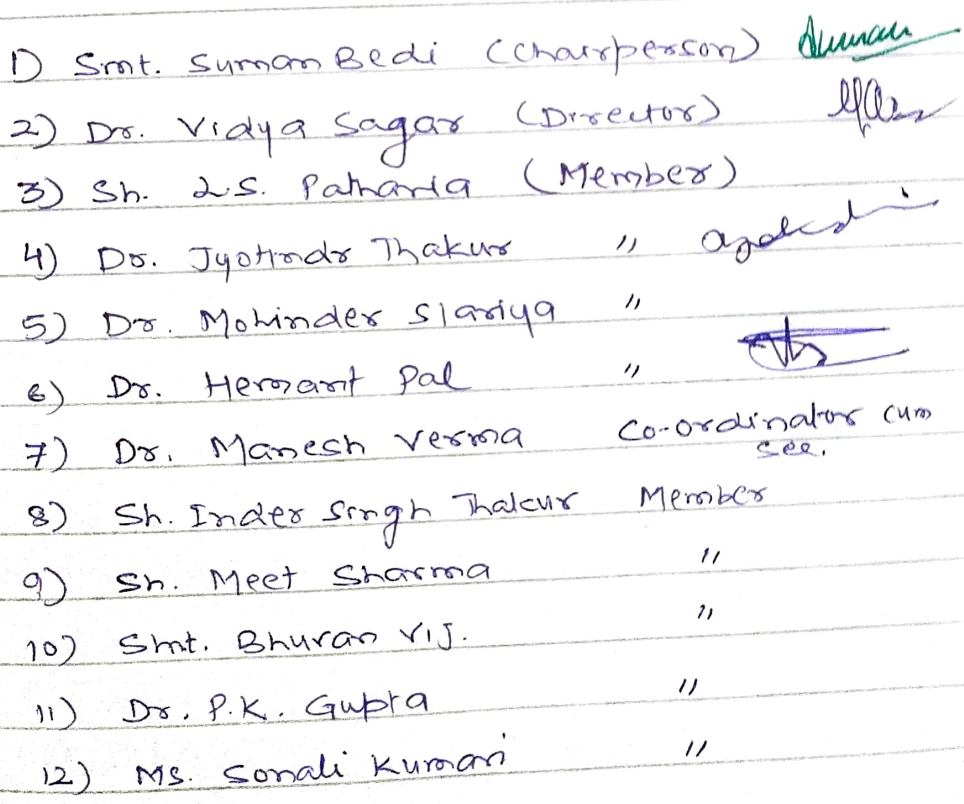 1) Smt. Suman Bedi (Chairperson) Suman
2) Dr. Vidya Sagar (Director)
3) Sh. L.S. Patharia (Member)
4) Dr. Jyotindr Thakur "
5) Dr. Mohinder Slariya "
6) Dr. Hemant Pal "
7) Dr. Manesh Verma Co-ordinator cum
Sec.
8) Sh. Inder Singh Thakur Member
9) Sh. Meet Sharma "
10) Smt. Bhuvan Vij. "
11) Dr. P.K. Gupta "
12) Ms. Sonali Kumari "